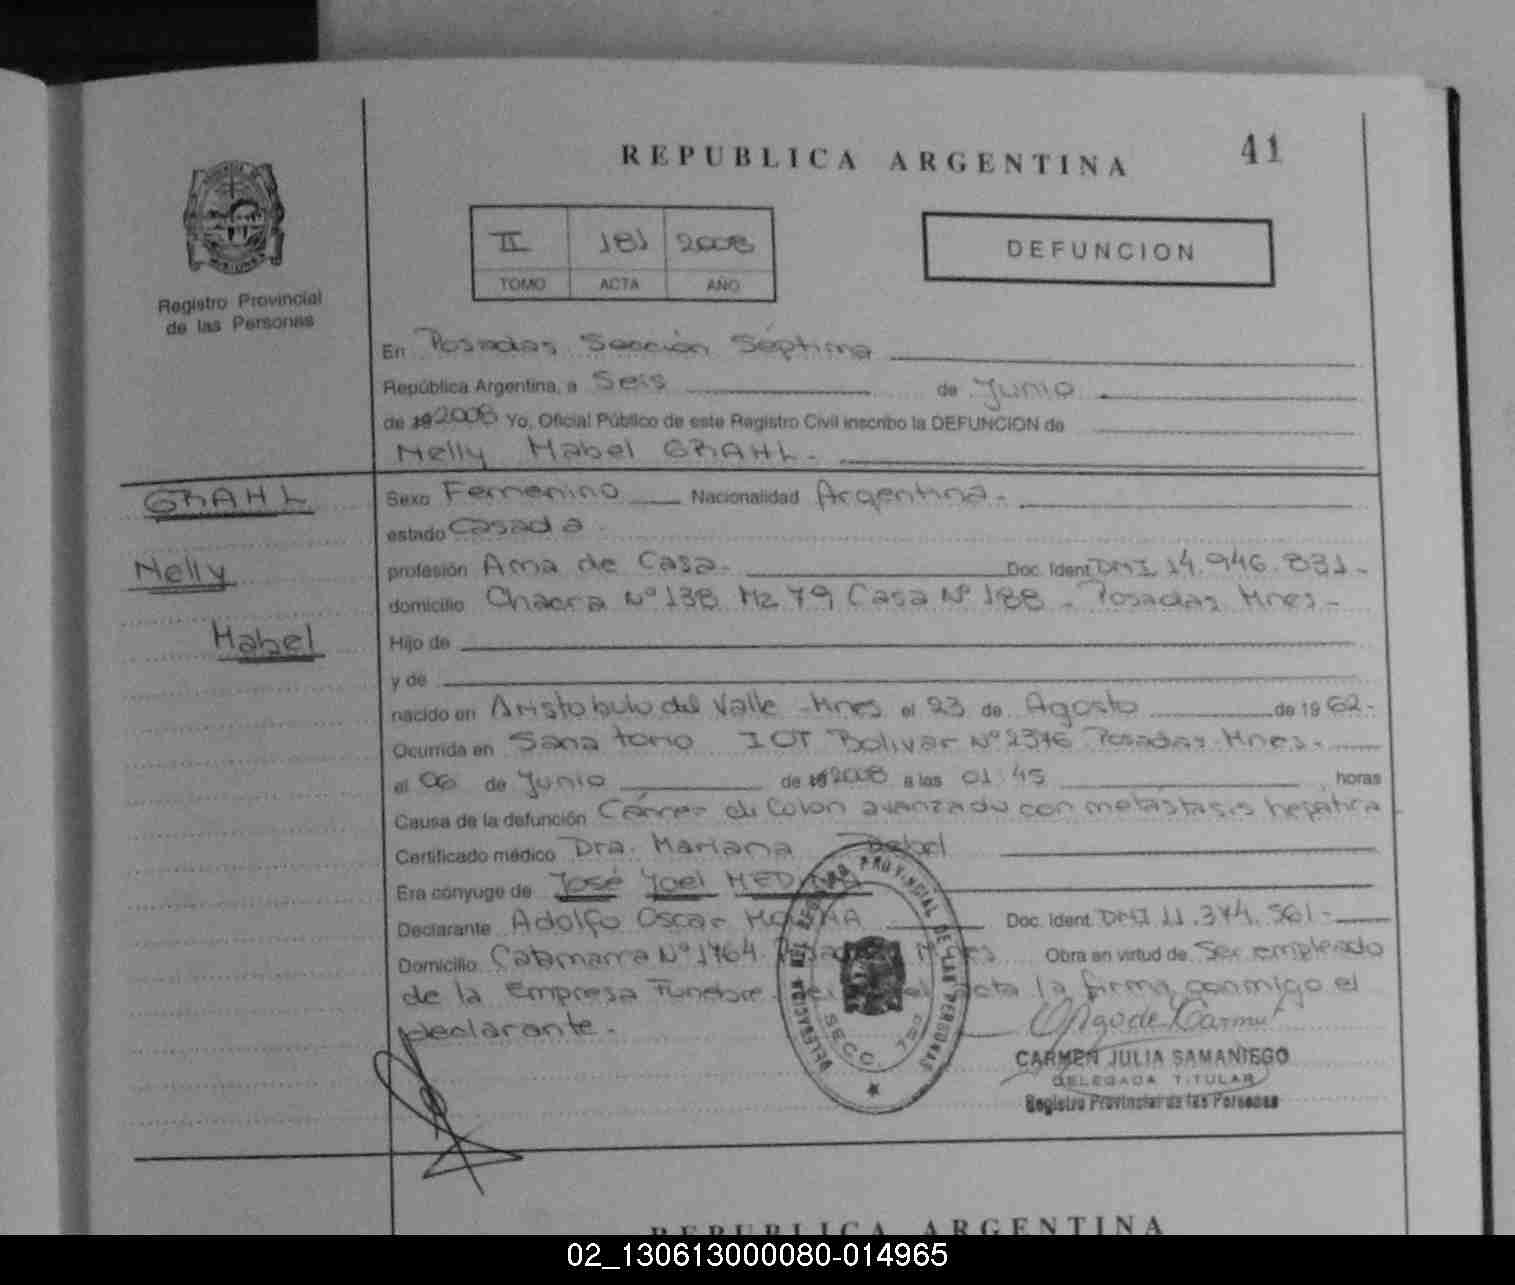 REPUBLICA ARGENTINA
41
II 181 2008
TOMO ACTA AÑO
DEFUNCION
Registro Provincial
de las Personas
En Posadas Sección Séptima
República Argentina, a Seis de Junio
de 19 2008 Yo, Oficial Público de este Registro Civil inscribo la DEFUNCION de
Nelly Mabel GRAHL.-
GRAHL
Nelly
Mabel
Sexo Femenino Nacionalidad Argentina.-
estado Casada.
profesión Ama de Casa.- Doc. Ident. DNI 14.946.831.-
domicilio Chacra Nº 138 Mz 79 Casa Nº 188 - Posadas Mnes-
Hijo de
y de
nacido en Aristobulo del Valle - Mnes el 23 de Agosto de 19 62.-
Ocurrida en Sanatorio IOT Bolivar Nº 2376 Posadas-Mnes.-
el 06 de Junio de 19 2008 a las 01:45 horas
Causa de la defunción Cáncer de Colon avanzado con metástasis hepática
Certificado médico Dra. Mariana
Era cónyuge de José Yoel MEDINA
Declarante Adolfo Oscar MOLINA Doc. Ident. DNI 11.374.561.-
Domicilio Catamarca Nº 1764 Posadas Mnes Obra en virtud de Ser empleado
de la Empresa Funebre. acta la firma conmigo el
declarante.
DELEGACION DEL REGISTRO PROVINCIAL DE LAS PERSONAS
SECC. 7ma
CARMEN JULIA SAMANIEGO
DELEGADA TITULAR
Registro Provincial de las Personas
REPUBLICA ARGENTINA
02_130613000080-014965